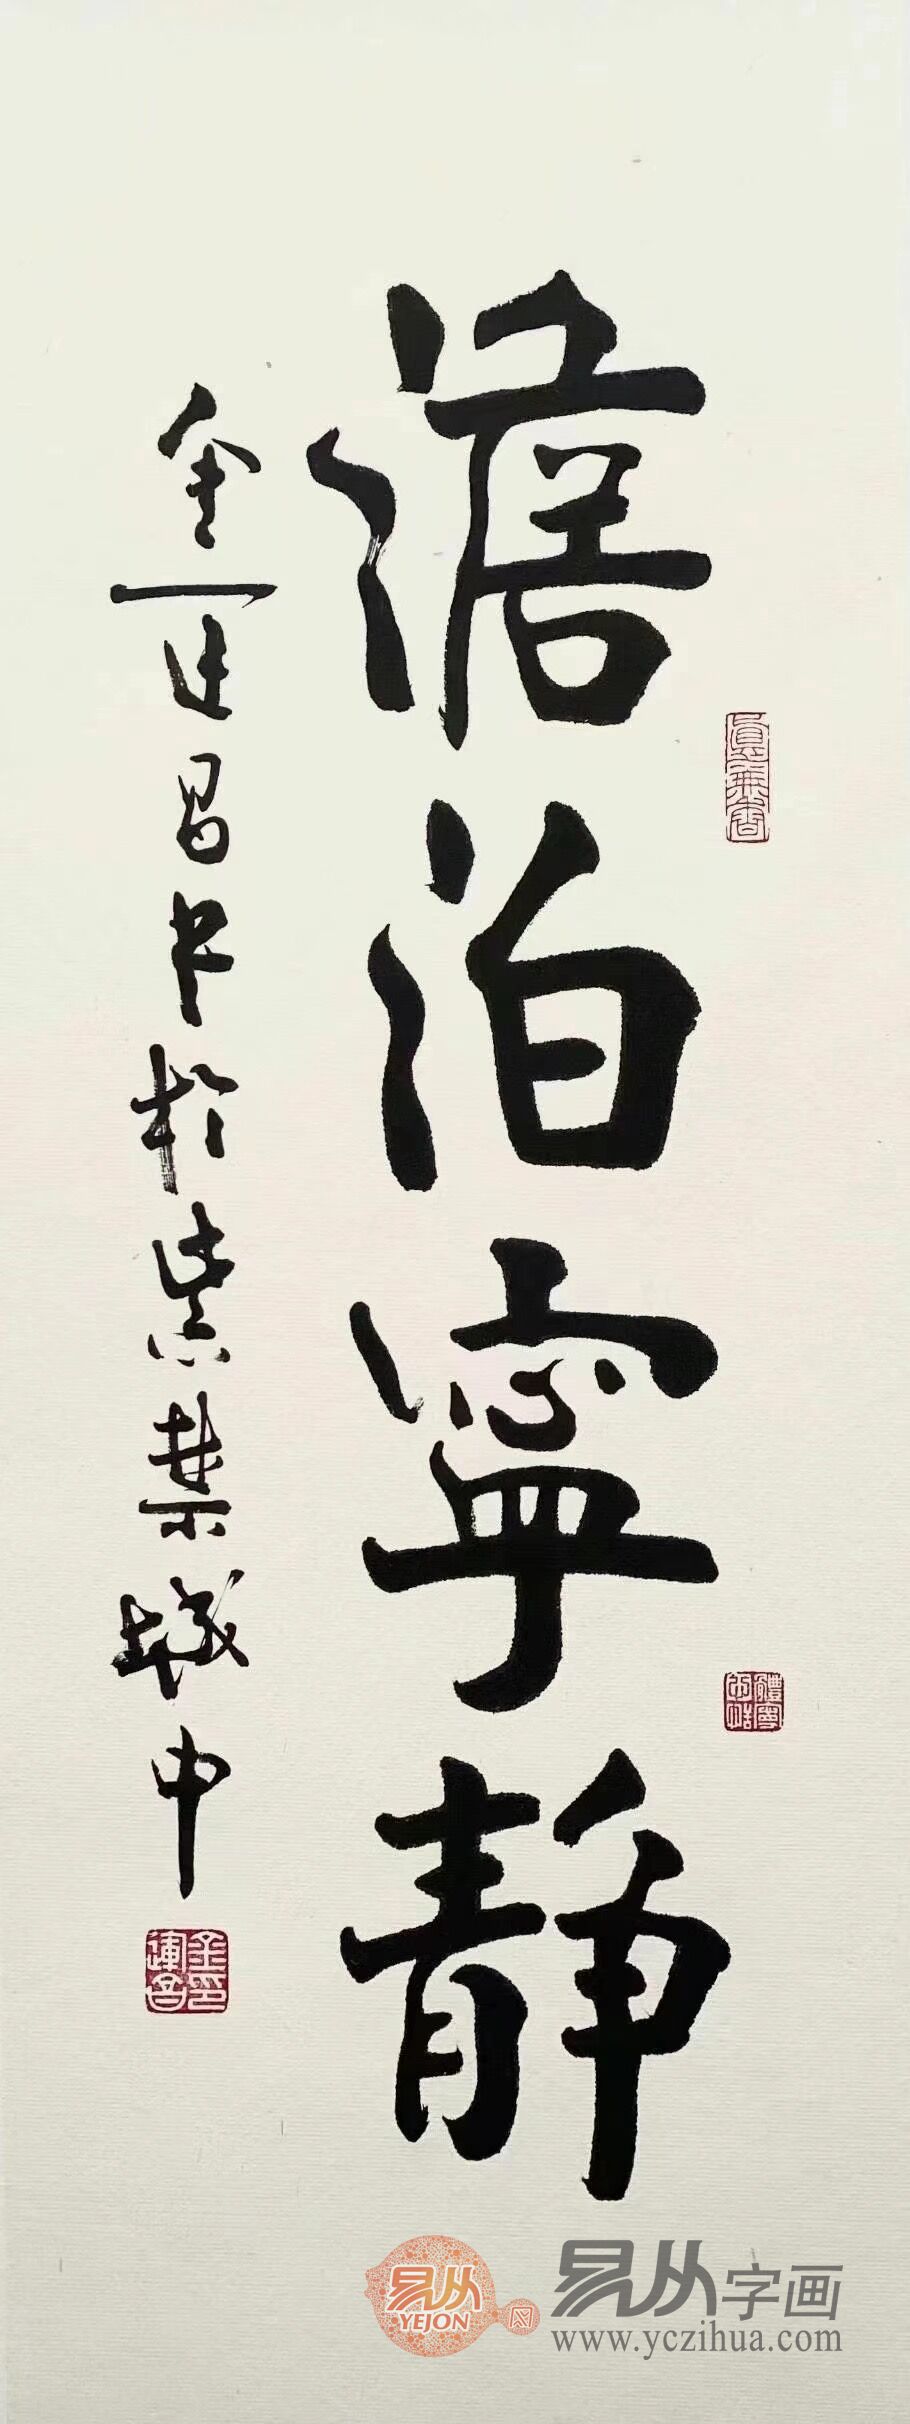 澹泊寧靜
金運昌书於紫禁城中
金印
運昌
易从
YEJON
易从字画
www.yczihua.com